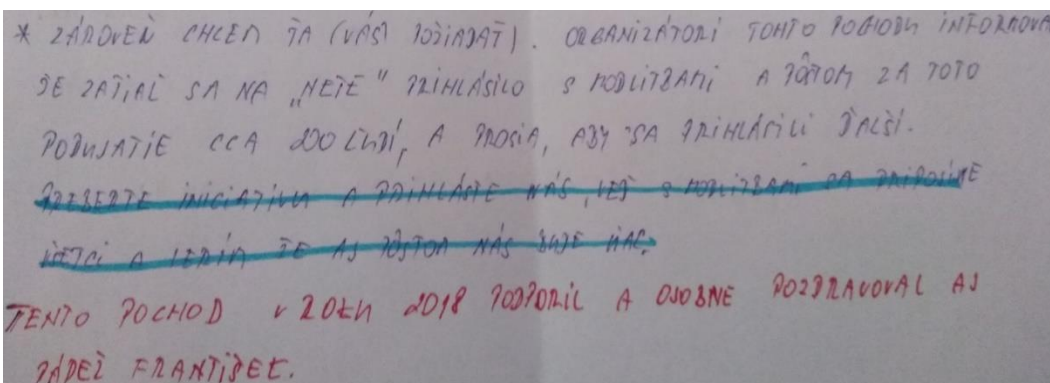 * ZÁROVEŇ CHCEM ŤA (VÁS) POŽIADAŤ). ORGANIZÁTORI TOHTO POCHODU INFORMOVA
ŽE ZATIAĽ SA NA „NETE" PRIHLÁSILO S MODLITBAMI A PÔSTOM ZA TOTO
PODUJATIE CCA 200 ĽUDÍ, A PROSIA, ABY SA PRIHLÁSILI ĎALŠÍ.
PREBERTE INICIATÍVU A PRIHLÁSTE NÁS, VEĎ S MODLITBAMI SA PRIPOJÍME
VŠETCI A VERÍM ŽE AJ PÔSTOM NÁS BUDE VIAC.
TENTO POCHOD V ROKU 2018 PODPORIL A OSOBNE POZDRAVOVAL AJ
PÁPEŽ FRANTIŠEK.